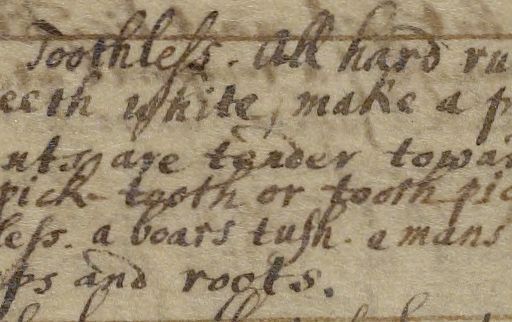 Toothleſs. All hard ru
eeth white, make a p
uts are tender towa
pick-tooth or tooth pic
leſs. a boars tuſh. a mans
ps and roots.